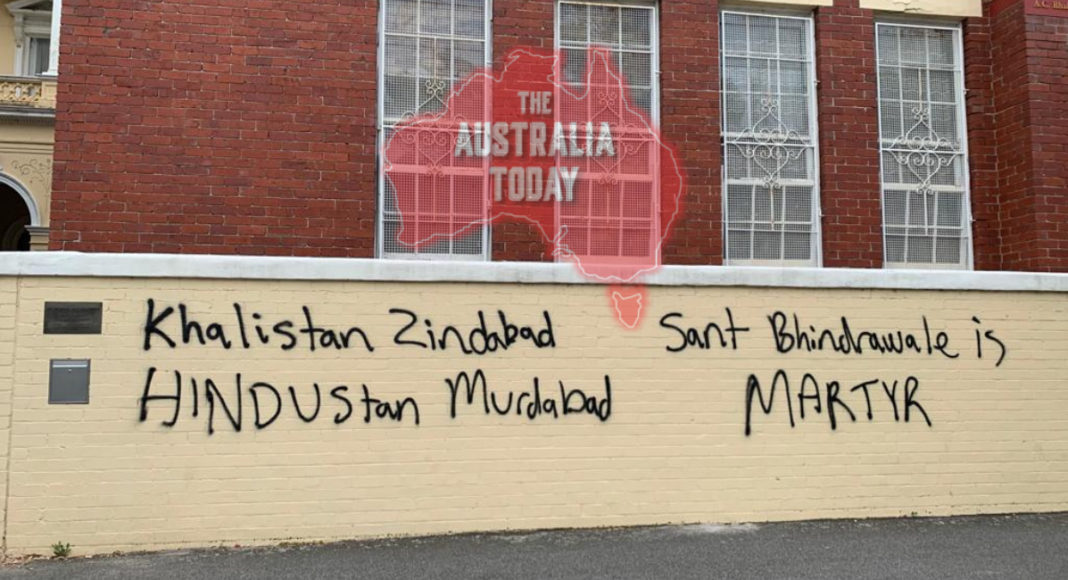 THE
AUSTRALIA
TODAY
Khalistan Zindabad
HINDUStan Murdabad
Sant Bhindrawale is
MARTYR